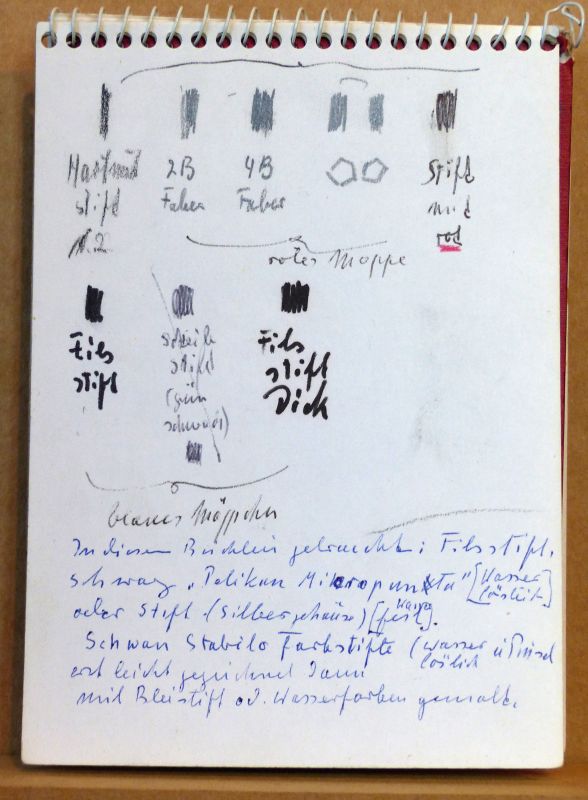 2B 4B Stift
stift Faber Faber mit
N.2 rot
rotes Mappe
Filz Filz
stift stift stift
(grün Dick
schwarz)
blaues Mäppchen
In diesem Büchlein gebraucht: Filzstift,
schwarz "Pelikan Mikropunkta" [Wasser
löslich]
oder Stift (Silbergehäuse) [Wasser
fest].
Schwan Stabilo Farbstifte (Wasser u Pinsel
löslich
erst leicht gezeichnet dann
mit Bleistift od. Wasserfarben gemalt.